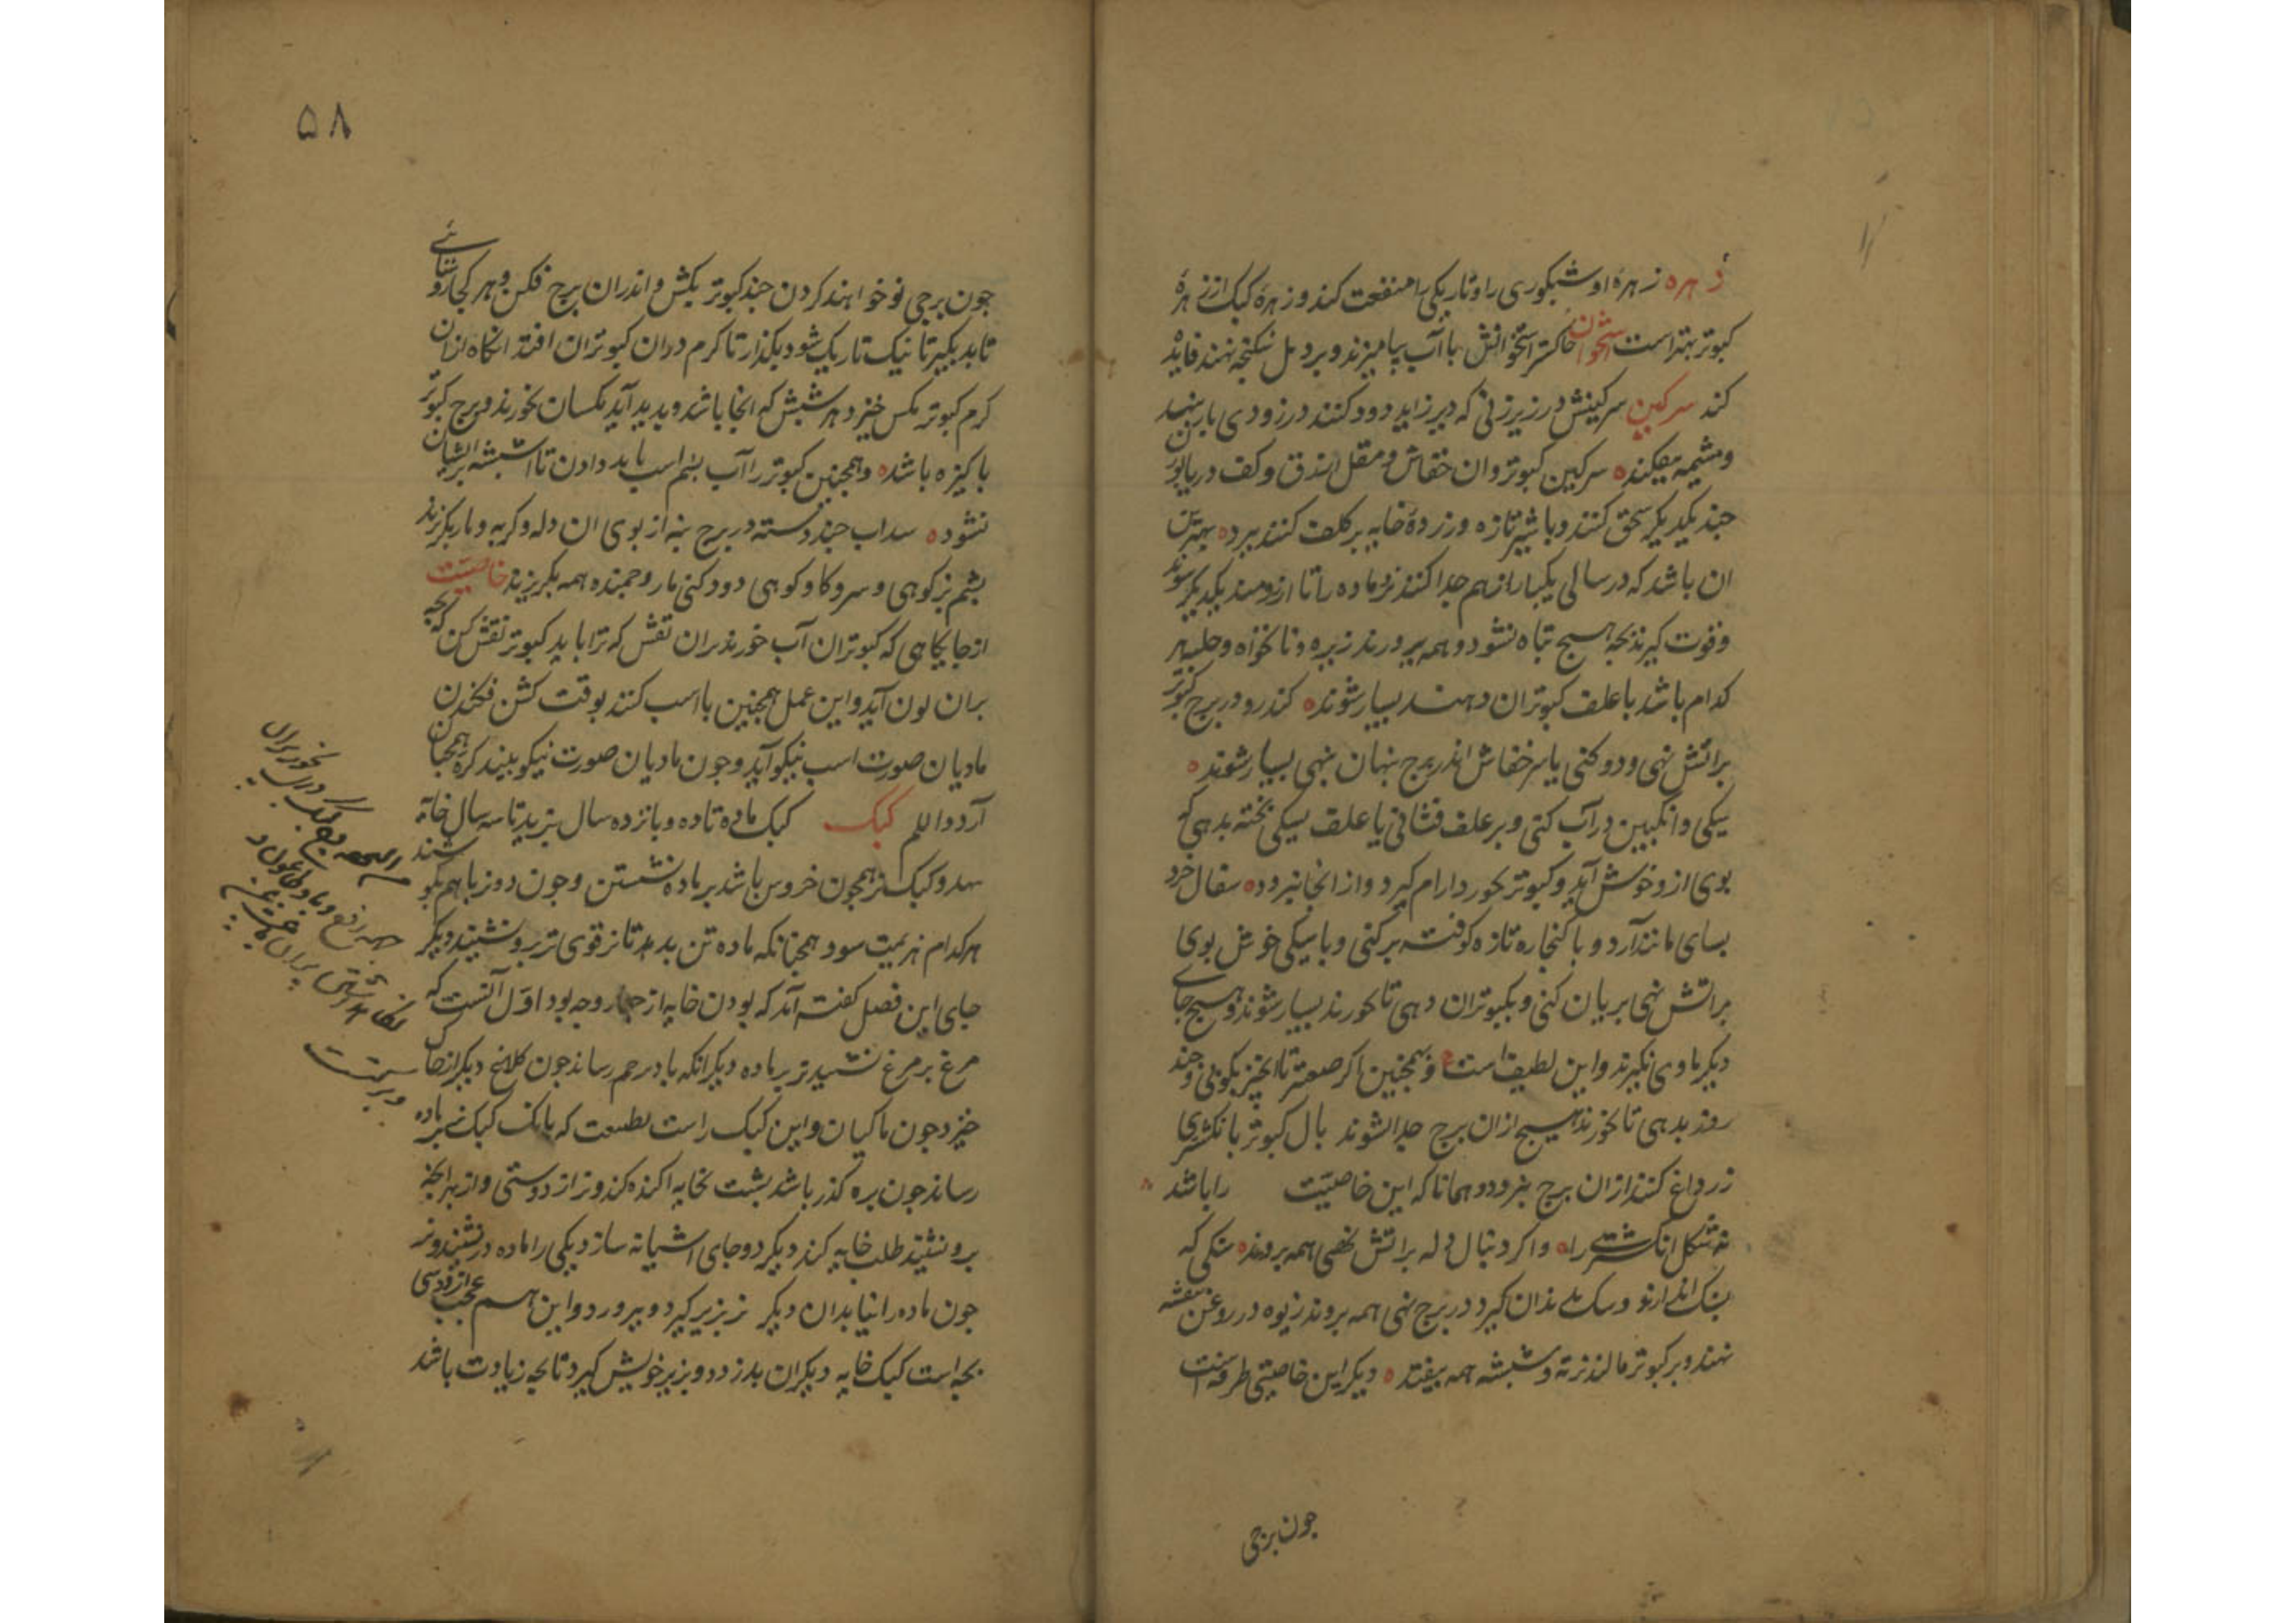 زهره زهره او شبکوری را و تاریکی را منفعت کند و زهره کبک از زهرهٔ
کبوتر بهتر است استخوان خاکستر استخوانش با آب بیامیزند و بر دمل شکنجه نهند فایده
کند سرکین سرکینش در زیر زنی که دیر زاید دود کنند در زودی بار بنهد
و مشیمه بیفکند سرکین کبوتر و ان خفاش و مقل ازرق و کف دریا از
جند یکدیکر سحق کنند و با شیر تازه و زردهٔ خایه بر کلف کنند ببرد بهترین
ان باشد که در سالی یکبار از هم جدا کنند نر و ماده را تا ارزومند یکدیکر شوند
و قوت کیرند بجه هیج تباه نشود و همه ببرورند زیره و نانخواه و حلبه هر
کدام باشد با علف کبوتران دهند بسیار شوند کندر و در برج کبوتر
بر اتش نهی و دود کنی یا سر خفاش اندر برج بنهان نهی بسیار شوند
سیکی و انکبین در آب کنی و بر علف فشانی یا علف بسیکی بخته بدهی که
بوی ازو خوش آید و کبوتر بخورد ارام کیرد و از انجا نبرد سفال خرد
بسای مانند آرد و با کنجاره تازه کوفته بر کنی و با سیکی خوش بوی
بر اتش نهی بریان کنی و بکبوتران دهی تا بخورند بسیار شوند و هیج جای
دیکر ماوی نکیرند و این لطیف است و همجنین اکر صعتر تا بخیز بکوبی و جند
روز بدهی تا بخورند هیج ازان برج جدا نشوند بال کبوتر بانکشتری
زر داغ کنند ازان برج نبرود و همانا که این خاصیت را باشد
نه شکل انکشتری را و اکر دنبال دله بر اتش نهی همه بروند سنکی که
سک اندازند و سک بدندان کیرد در برج نهی همه بروند زیوه در روغن بنفشه
نهند و بر کبوتر مالند نرته و شبشه همه بیفتد دیکر این خاصیتی طرفه است
جون برجی
۵۸
جون برجی نو خواهند کردن جند کبوتر بکش و اندران برج فکن و هر کجا روشنائی
تابد بکیر تا نیک تاریک شود بکذار تا کرم دران کبوتران افتد انکاه ازان
کرم کبوتر مکس خیزد هر شبش که انجا باشد و بدید آید مکسان بخورند و برج کبوتر
باکیزه باشد و همجنین کبوتر را آب بشم اسب باید دادن تا شبشه بر ایشان
نشود سداب جند دسته در برج بنه از بوی ان دله و کربه و مار بکریزند
بشم بز کوهی و سرو کاو کوهی دود کنی مار و جمنده همه بکریزند خاصیت
از جایکاهی که کبوتران آب خورند بران نقش که ترا باید کبوتر نقش کن که بجه
بران لون آید و این عمل همجنین با اسب کنند بوقت کشن فکندن
مادیان صورت اسب نیکو آید و جون مادیان صورت نیکو بیند کره همجنان
آرد و الله اعلم کبک کبک ماده تا ده و بانزده سال بزید تا سه سال خایه
نهد و کبک نر همجون خروس باشد بر ماده نشستن و جون دو نر با هم بکوشند
هر کدام هزیمت شود همجنانکه ماده تن بدهد تا نر قوی تر برو نشیند دیکر
جای این فصل کفته آمد که بودن خایه از جهار وجه بود اول آنست که
مرغ بر مرغ نشیند نر بر ماده دیکر انکه باد رحم رساند جون کلاغ دیکر از خاک
خیزد جون ماکیان و این کبک راست بطبیعت که بانک کبک نر بر ماده
رساند جون بره کذر باشد بشت بخایه اکنده کند و نر از دوستی و از بهر انکه
برو نشیند طلب خایه کند دیکر دو جای اشیانه سازد یکی را ماده در نشیند و نر
جون ماده را نیابد ان دیکر نر بزیر کیرد و ببرورد و این هم عجب از دوستی
بجه است کبک خایه دیکران بدزدد و بزیر خویش کیرد تا بجه زیادت باشد
و برکت